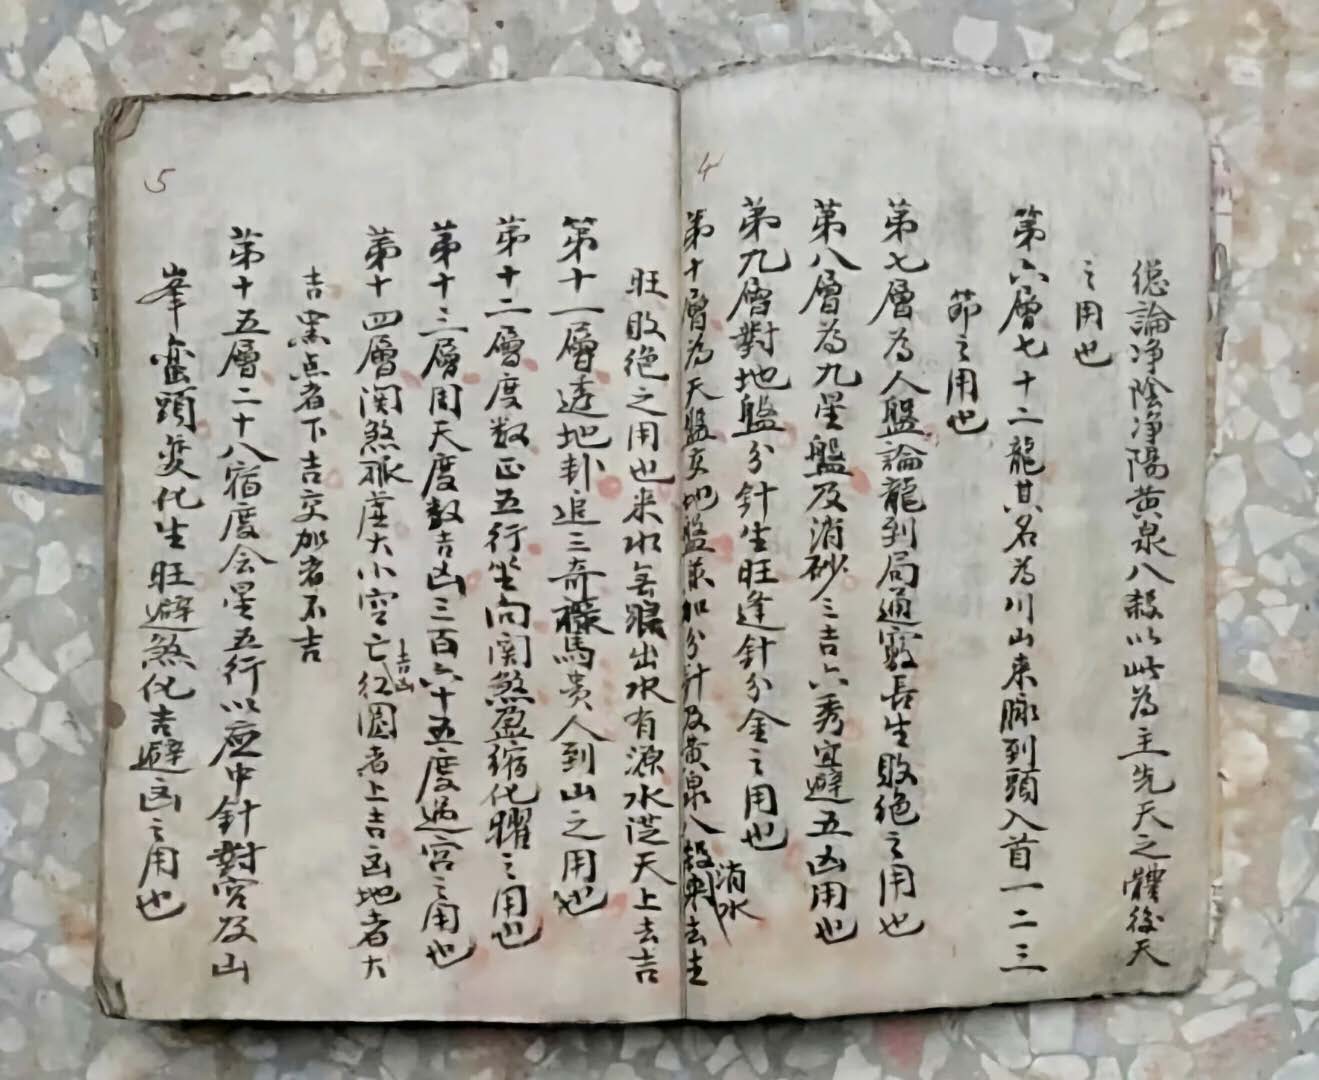 4
總論净陰净陽黄泉八殺以此為主先天之體後天
之用也
第六層七十二龍其名為川山来脉到頭入首一二三
節之用也
第七層為人盤論龍到局通竅長生敗絶之用也
第八層為九星盤及消砂三吉六秀宜避五凶用也
第九層對地盤分針生旺逢針分金之用也
第十層為天盤交地盤並加分針及黄泉八殺来去生
消水
旺敗絶之用也来水無浪出水有源水從天上去吉
第十一層透地卦追三奇禄馬贵人到山之用也
第十二層度数正五行坐向関煞盈缩化曜之用也
第十三層周天度数吉凶三百六十五度過宫之用也
第十四層関煞脉度大小空亡红圆者上吉凶地者大
吉凶
吉黑点者下吉交加者不吉
5
第十五層二十八宿度会星五行以应中針對宫及山
峯峦頭变化生旺避煞化吉避凶之用也